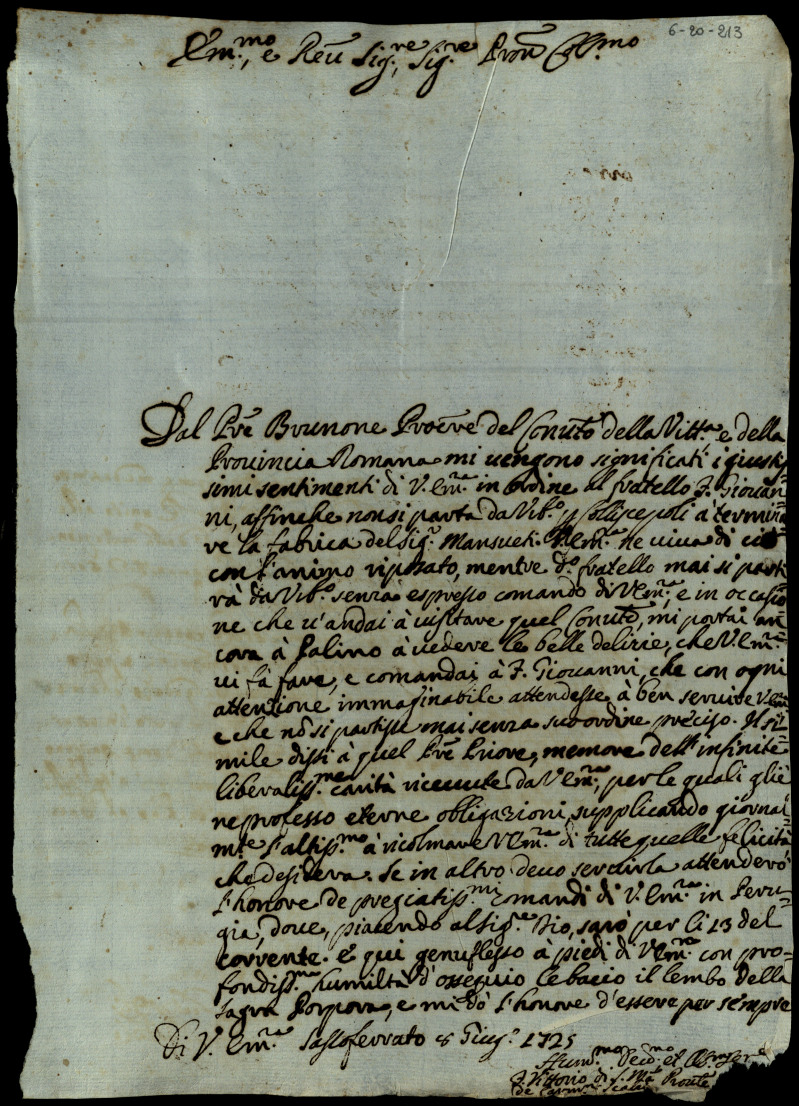 6-20-213
Em.mo, e Reu Sig.re, Sig.re Pron Coll.mo
Dal Pre Brunone Procre del Conuto della Vitt.a e della
Prouincia Romana mi uengono significati i giustis
simi sentimenti di V. Em.a in ordine al fratello F. Giouan=
ni, affinche non si parta da Vib.o p Colliscepoli à termina
re la fabrica del Sig.r Mansueti. V. Em.a ne uiua di ciò
con l'animo riposato, mentre d.o fratello mai si parti
rà da Vib.o senza espresso comando di V Em.a, e in occasio
ne che u'andai à uisitare quel Conuto, mi portai an
cora à Palino à uedere le belle delizie, che V Em.a
ui fà fare, e comandai à F. Giouanni, che con ogni
attentione immaginabile attendesse à ben seruire V Em.a
e che nõ si partisse mai senza suo ordine preciso. Il si
mile dissi à quel Pre Priore, memore dell'infinite
liberaliss.me carità riceuute da V Em.a, per le quali gliè
ne professo eterne obligazioni, supplicando giornal=
mte l'altiss.mo à ricolmare V Em.a di tutte quelle felicità
che desidera. Se in altro deuo seruirla attenderò
l'honore de pregiatiss.mi comandi di V. Em.a in Peru=
gia, doue, piacendo al Sig.re Dio, sarò per li 13 del
corrente. E qui genuflesso à piedi di V Em.a con pro=
fondiss.ma humiltà d'ossequio le bacio il lembo della
sagra Porpora, e mi dò l'honore d'essere per sempre
Di V. Em.a Sassoferrato 8 Giug.o 1725
Hum.mo Deu.mo et Obl.mo Ser.e
F. Vittorio di S. M.a Prou.le
de Carm.ni Scalzi